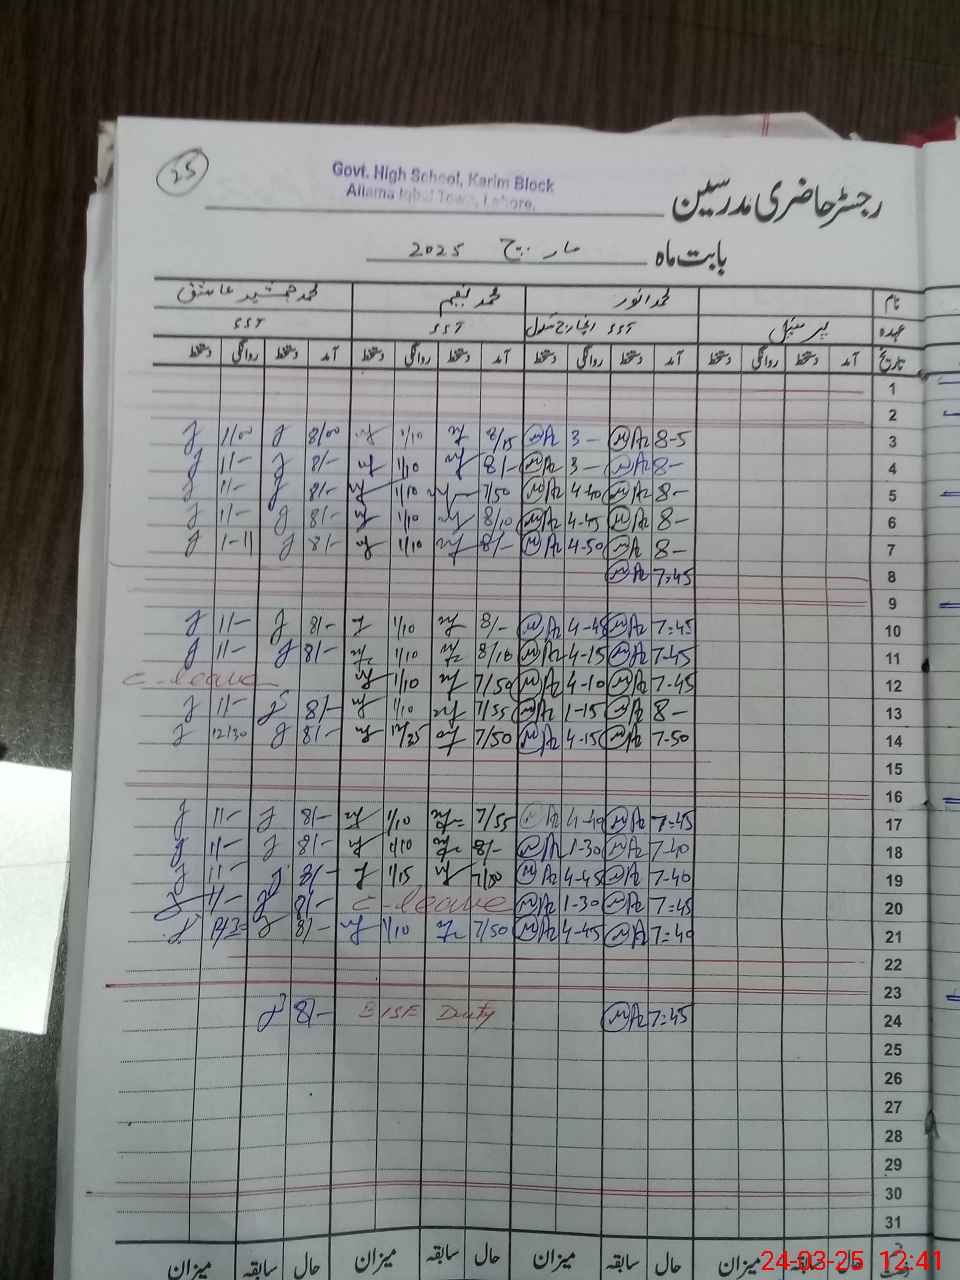 25
Govt. High School, Karim Block
Allama Iqbal Town, Lahore.
رجسٹر حاضری مدرسین
بابت ماہ مارچ 2025
نام محمد انور محمد نعیم محمد جمشید عاشق
عہدہ پرنسپل SST انچارج سکول SST SST
تاریخ آمد دستخط روانگی دستخط آمد دستخط روانگی دستخط آمد دستخط روانگی دستخط آمد دستخط روانگی دستخط
1
2
3 8-5 3- 8/15 1/10 8/00 1/00
4 8- 3- 8/- 1/10 8/- 1/-
5 8- 4-40 7/50 1/10 8/- 1/-
6 8- 4-45 8/10 1/10 8/- 1/-
7 8- 4-50 8/- 1/10 8/- 1-11
8 7=45
9
10 7=45 4-45 8/- 1/10 8/- 1/-
11 7-45 4-15 8/10 1/10 8/- 1/-
12 7-45 4-10 7/50 1/10 C-leave
13 8- 1-15 7/55 1/10 8/- 1/-
14 7-50 4-15 7/50 8/- 12/30
15
16
17 7=45 4-40 7/55 1/10 8/- 1/-
18 7-40 1-30 8/- 1/10 8/- 1/-
19 7-40 4-45 1/15 8/- 1/-
20 7=45 1-30 C-leave 8/- 1/-
21 7=40 4-45 7/50 1/10 8/-
22
23
24 7=45 BISE Duty 8/-
25
26
27
28
29
30
31
حال سابقہ میزان حال سابقہ میزان حال سابقہ میزان حال سابقہ میزان
24-03-25 12:41